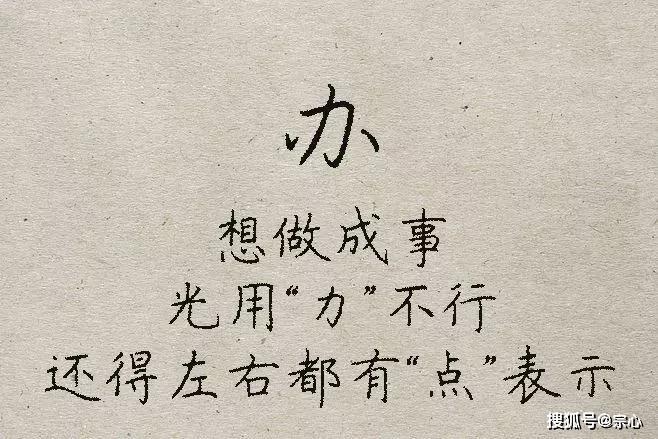 办
想做成事
光用“力”不行
还得左右都有“点”表示
搜狐号@宗心